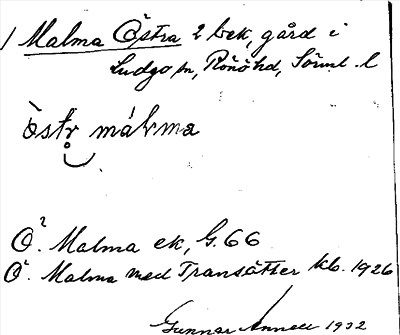 1 Malma Östra 2 bek, gård i
Ludgo sn, Rönö hd, Sörml. l
östr málma
Ö. Malma ek, G. 66
Ö. Malma med Transätter kb. 1926
Gunnar Annell 1932